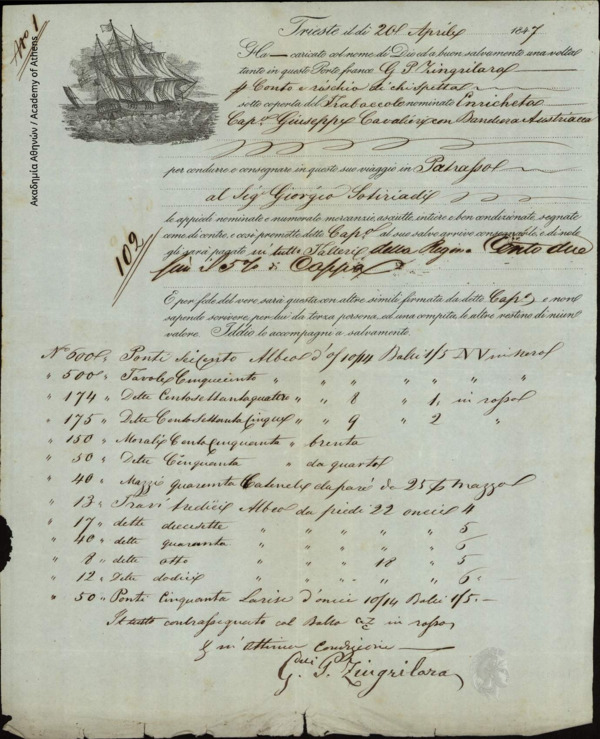 No 1
Trieste il di 20 Aprile 1847
Ha caricato col nome di Dio ed a buon salvamento una volta
tanto in questo Porto franco G P Zingrilara
p Conto e rischio di chi spetta
sotto coperta del Trabaccolo nominato Enricheta
Capn Giuseppe Cavalieri con Bandiera Austriaca
per condurre e consegnare in questo suo viaggio in Patrasso
al Sig Giorgio Sotiriadi
le appiedi nominate e numerate mercanzie, asciutte, intiere e ben condizionate, segnate
come di contro, e così promette detto Capn al suo salvo arrivo consegnarle, e di nolo
gli sarà pagato in tutto Talleri della Regina Cento due
più 5% di Cappa
102
E per fede del vero sarà questa con altre simili firmata da detto Capn e non
sapendo scrivere, per lui da terza persona, ed una compita, le altre restino di niun
valore. Iddio le accompagni a salvamento.
No 600 Ponti Seicento Albeo d'o/ 10/14 Balci 1/5 NV in nero
" 500 " Tavole Cinquecento " " " " " "
" 174 " Dette Cento Settantaquattro " " 8 " 1, in rosso
" 175 " Dette Cento Settanta Cinque " " 9 " 2 "
" 150 " Morali Cento Cinquanta " brenta
" 50 " Dette Cinquanta " da quarto
" 40 " Mazzi quaranta Cantinele da paré da 25 p mazzo
" 13 " Travi tredici Albeo da piedi 22 oncie 4
" 17 " dette diecisette " " " " 5
" 40 " dette quaranta " " " " 6
" 8 " dette otto " " 18 " 5
" 12 " Dette dodici " " " " 6
" 50 " Ponti Cinquanta Larise d'oncie 10/14 Balci 1/5.
Il tutto contrassegnato col Bollo in rosso
e in ottima condizione
G. P. Zingrilara
Ακαδημία Αθηνών / Academy of Athens